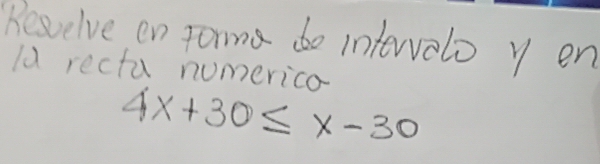 Resuelve en forma de intervalo y en
la recta numerica
4x+30 ≤ x-30